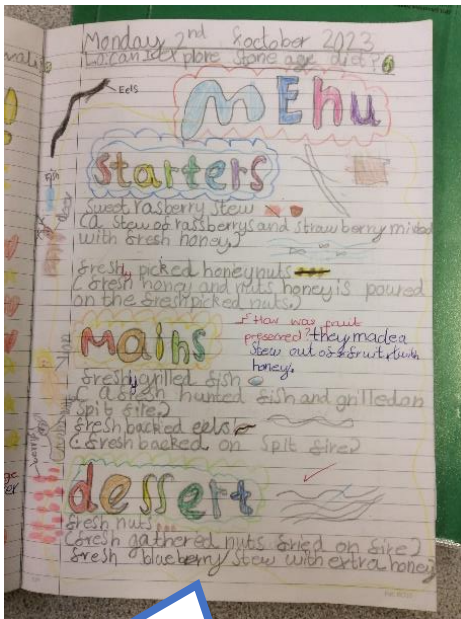 Monday 2nd October 2023
L.O can I explore stone age diet?
Eels
MEnu
starters
sweet rasberry stew
(a stew of rassberrys and strawberry mixed
with fresh honey)
fresh picked honeynuts
(fresh honey and nuts honey is poured
on the fresh picked nuts.)
mains
How was fruit
preserved? they made a
stew out of fruit, with
honey.
freshly grilled fish
(a fresh hunted fish and grilled on
spit fire)
fresh backed eels
(fresh backed on spit fire)
dessert
fresh nuts
(fresh gathered nuts fried on fire)
fresh blueberry stew with extra honey